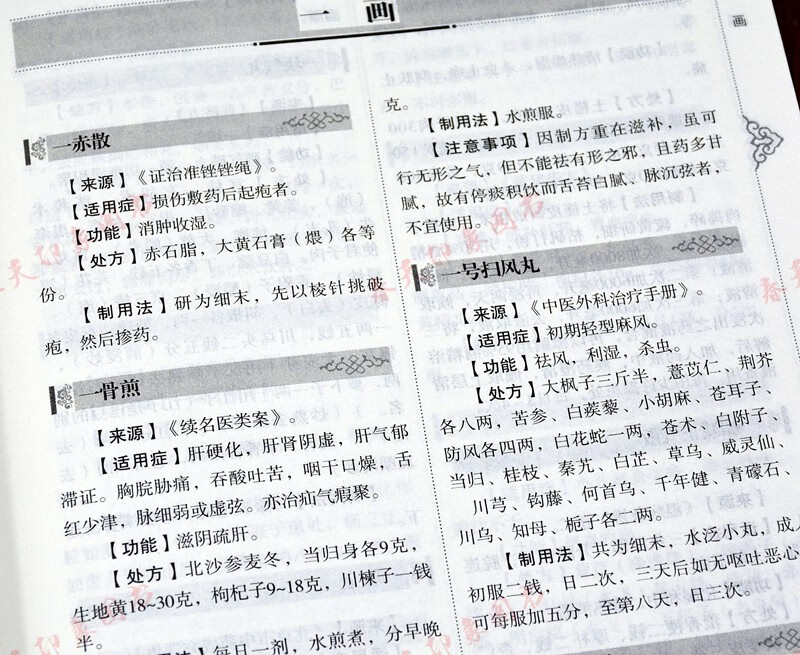 一画
画
一赤散
【来源】《证治准锉锉绳》。
【适用症】损伤敷药后起疱者。
【功能】消肿收湿。
【处方】赤石脂，大黄石膏（煨）各等
份。
【制用法】研为细末，先以棱针挑破
疱，然后掺药。
一骨煎
【来源】《续名医类案》。
【适用症】肝硬化，肝肾阴虚，肝气郁
滞证。胸脘胁痛，吞酸吐苦，咽干口燥，舌
红少津，脉细弱或虚弦。亦治疝气瘕聚。
【功能】滋阴疏肝。
【处方】北沙参麦冬，当归身各9克，
生地黄18~30克，枸杞子9~18克，川楝子一钱
半。
每日一剂，水煎煮，分早晚
克。
【制用法】水煎服。
【注意事项】因制方重在滋补，虽可
行无形之气，但不能祛有形之邪，且药多甘
腻，故有停痰积饮而舌苔白腻、脉沉弦者，
不宜使用。
一号扫风丸
【来源】《中医外科治疗手册》。
【适用症】初期轻型麻风。
【功能】祛风，利湿，杀虫。
【处方】大枫子三斤半，薏苡仁、荆芥
各八两，苦参、白蒺藜、小胡麻、苍耳子、
防风各四两，白花蛇一两，苍术、白附子、
当归、桂枝、秦艽、白芷、草乌、威灵仙、
川芎、钩藤、何首乌、千年健、青礞石、
川乌、知母、栀子各二两。
【制用法】共为细末，水泛小丸，成人
初服二钱，日二次，三天后如无呕吐恶心
可每服加五分，至第八天，日三次。